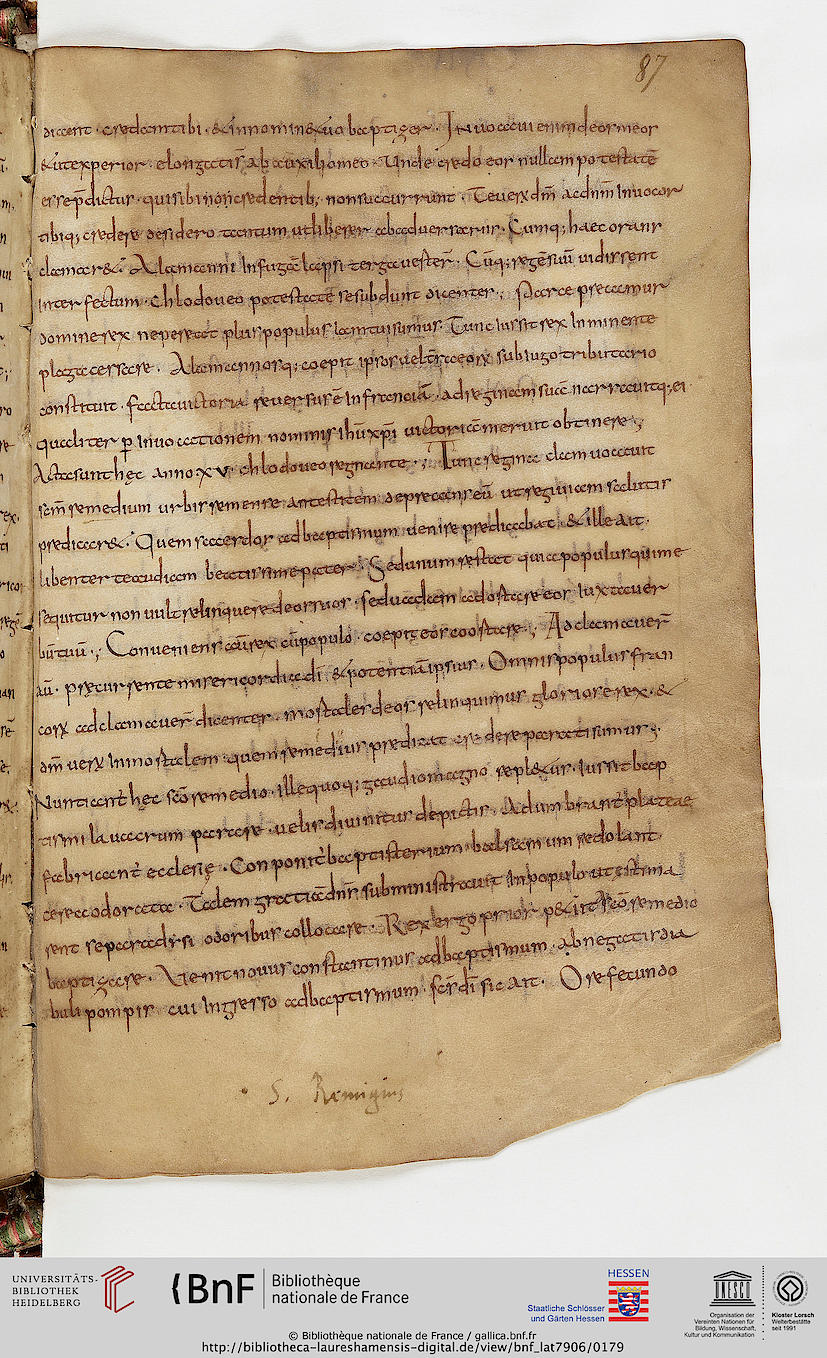 87
dicant · credam tibi · & in nomine tuo baptizer · Invocavi enim deos meos
& ut experior · elongati s̄ ab auxilio meo · Unde credo eos nullam potestatē
esse p̄dictus · qui sibi non credentib; non succurrunt · Te verū dm̄ ac dnm̄ invoco
tibiq; credere desidero tantum ut liberer ab adversariis · Cumq; haec orans
clamar& · Alamanni in fuga lapsi terga vester̄ · Cūq; regē suū vidissent
interfectum · chlodoveo potestate se subdunt dicentes ; Parce precamur
domine rex ne pereat plus populus iam tui sumus · Tunc iussit rex inminente
plaga cessare · Alamannosq; coepit ipsos vel t̄ra eoꝝ sub iugo tributario
constituit · facta victoria reversus ē in franciā · ad reginam suā narravitq; ei
qualiter ꝑ invocationem nominis ihū xp̄i victoriā meruit obtinere ;
Acta sunt hęc anno xv · chlodoveo regnante ·; Tunc regina clam vocavit
scm̄ remedium urbis remense antestitem deprecans eū ut regi viam salutis
predicar& · Quem sacerdos ad baptismum venire predicabat · & ille ait ·
libenter te audiam beatissime pater · Sed unum restat quia populus qui me
sequitur non vult relinquere deos suos · sed vadam ad ostare eos iuxta ver
bū tuū ·; Conveniens aūt rex cū populo · coepit eos coostare ·; Adclamaver̄
aū · pręcursente misericordia dī & potentiā ipsius · Omnis populus fran
coꝝ adclamaver̄ dicentes · mortales deos relinquimus gloriose rex · &
dm̄ verū inmortalem quem remedius predicat credere parati sumus ;
Nuntiant̄ hęc sc̄o remedio · ille quoq; gaudio magno repl&us · iussit bap
tismi lavacrum parare · velis divinitus depictis · Adumbrant̄ plateae
fabricant̄ ecclesię · Conponit̄ baptisterium · balsamum redolant
cerea odorata · Talem gratiā dn̄s subministravit in populo ut estima
rent se paradisi odoribus collocare · Rex ergo prior p&iit sc̄o remedio
baptizare · Venit novus constantinus ad baptismum · abnegatis dia
buli pompis · cui ingresso ad baptismum · scs̄ dī sic ait · Ore fecundo
S. Remigius
UNIVERSITÄTS-
BIBLIOTHEK
HEIDELBERG
BnF
Bibliothèque
nationale de France
HESSEN
Staatliche Schlösser
und Gärten Hessen
UNESCO
Organisation der
Vereinten Nationen für
Bildung, Wissenschaft,
Kultur und Kommunikation
Kloster Lorsch
Welterbestätte
seit 1991
© Bibliothèque nationale de France / gallica.bnf.fr
http://bibliotheca-laureshamensis-digital.de/view/bnf_lat7906/0179